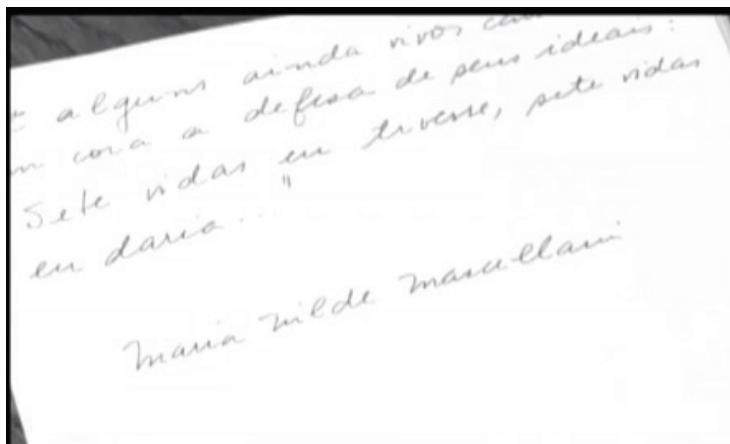 alguns ainda vivos
a defesa de seus ideais:
Sete vidas eu tivesse, sete vidas
eu daria..."
Maria Nilde Mascellani